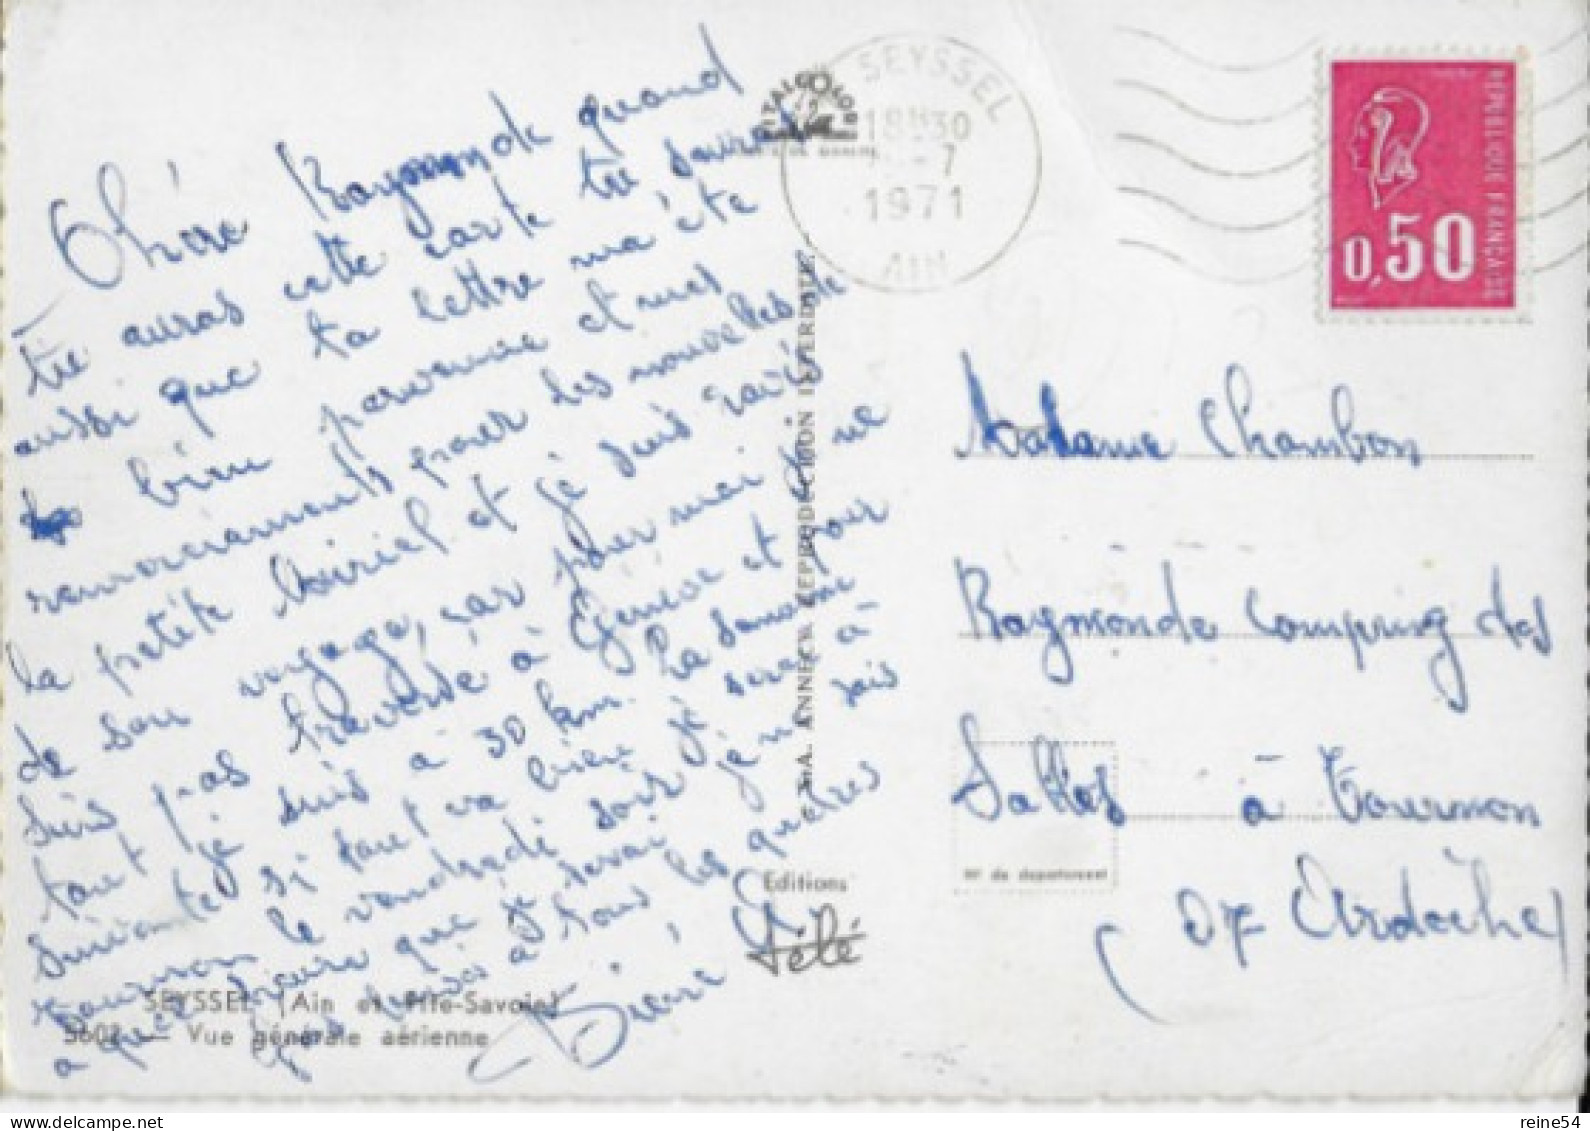 Chère Raymonde quand
tu auras cette carte tu sauras
aussi que ta lettre m'a été
bien parvenue et mes
remerciements pour les nouvelles de
la petite Muriel et je suis ravie
de son voyage, car pour moi je ne
suis pas traversé à Genève et pour
tant je suis à 30 km. La semaine
suivante si tout va bien je serai à
tournon le vendredi soir je ne sais
a quel heure que je serai
Gros à tous les quatres
Pierre
SEYSSEL (Ain et Hte-Savoie)
5602 — Vue générale aérienne
Editions
Télé
S.A. ANNECY REPRODUCTION INTERDITE
SEYSSEL
18H30
-7
1971
AIN
REPUBLIQUE FRANCAISE
0,50
Madame Chambon
Raymonde Camping des
Sables à Tournon
(07 Ardèche)
N° de departement
reine54